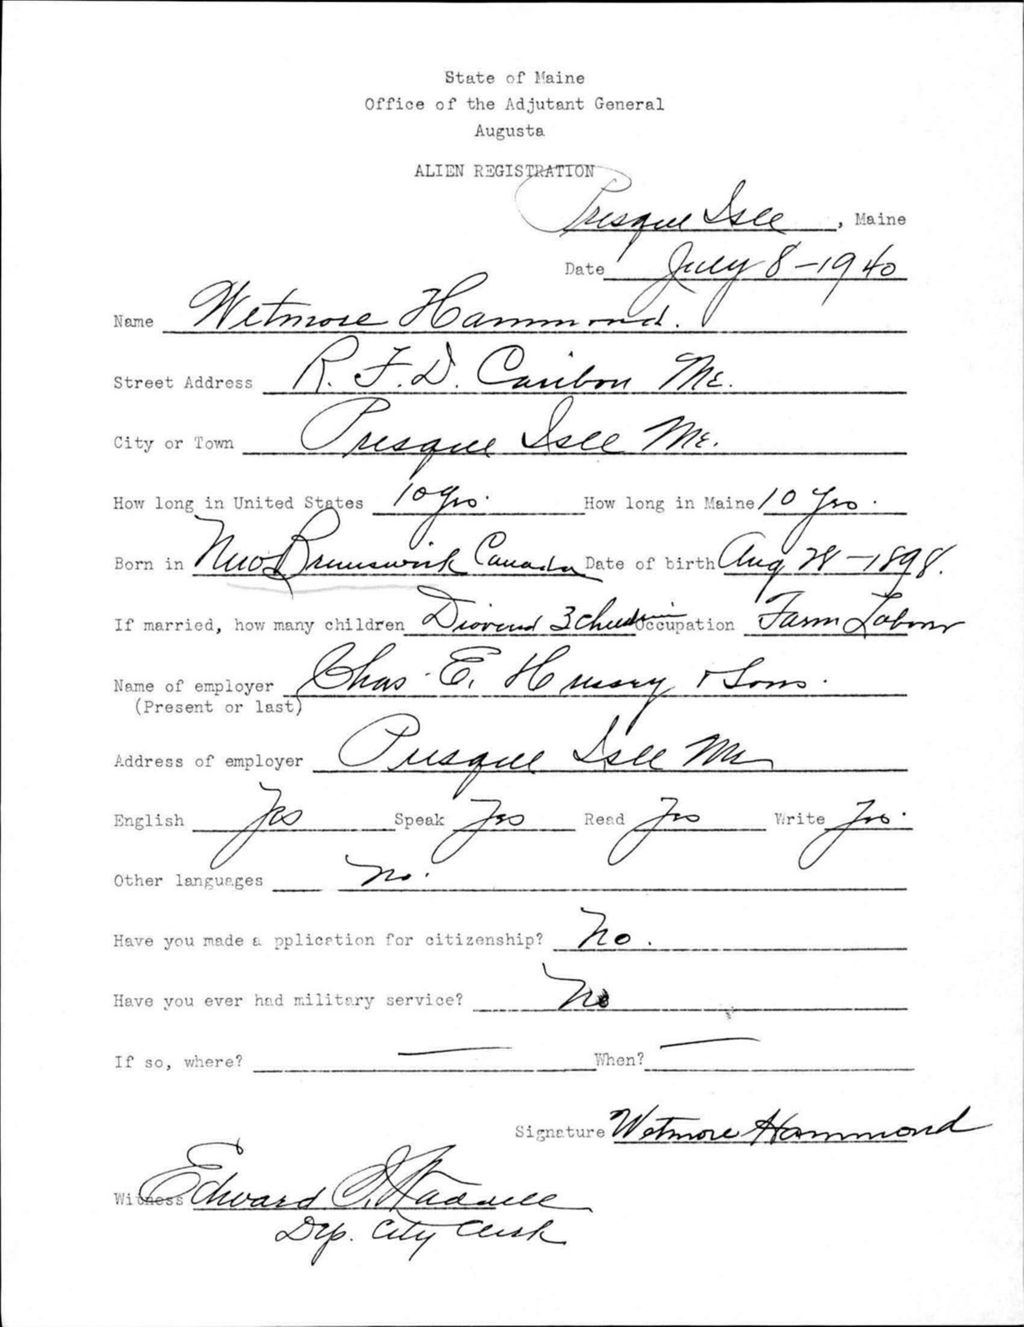 State of Maine
Office of the Adjutant General
Augusta
ALIEN REGISTRATION
Presque Isle, Maine
Date July 8-1940
Name Wetmore Hammond.
Street Address R.F.D. Caribou Me.
City or Town Presque Isle Me.
How long in United States 10 Yrs. How long in Maine 10 Yrs.
Born in New Brunswick Canada Date of birth Aug 28-1898.
If married, how many children 3 Occupation Farm Laborer
Name of employer Chas. E. Hussey & Sons.
(Present or last)
Address of employer Presque Isle Me
English Yes Speak Yes Read Yes Write Yes.
Other languages No.
Have you made a pplication for citizenship? No.
Have you ever had military service? No
If so, where? — When? —
Signature Wetmore Hammond
Witness Edward
Dep. City Clerk